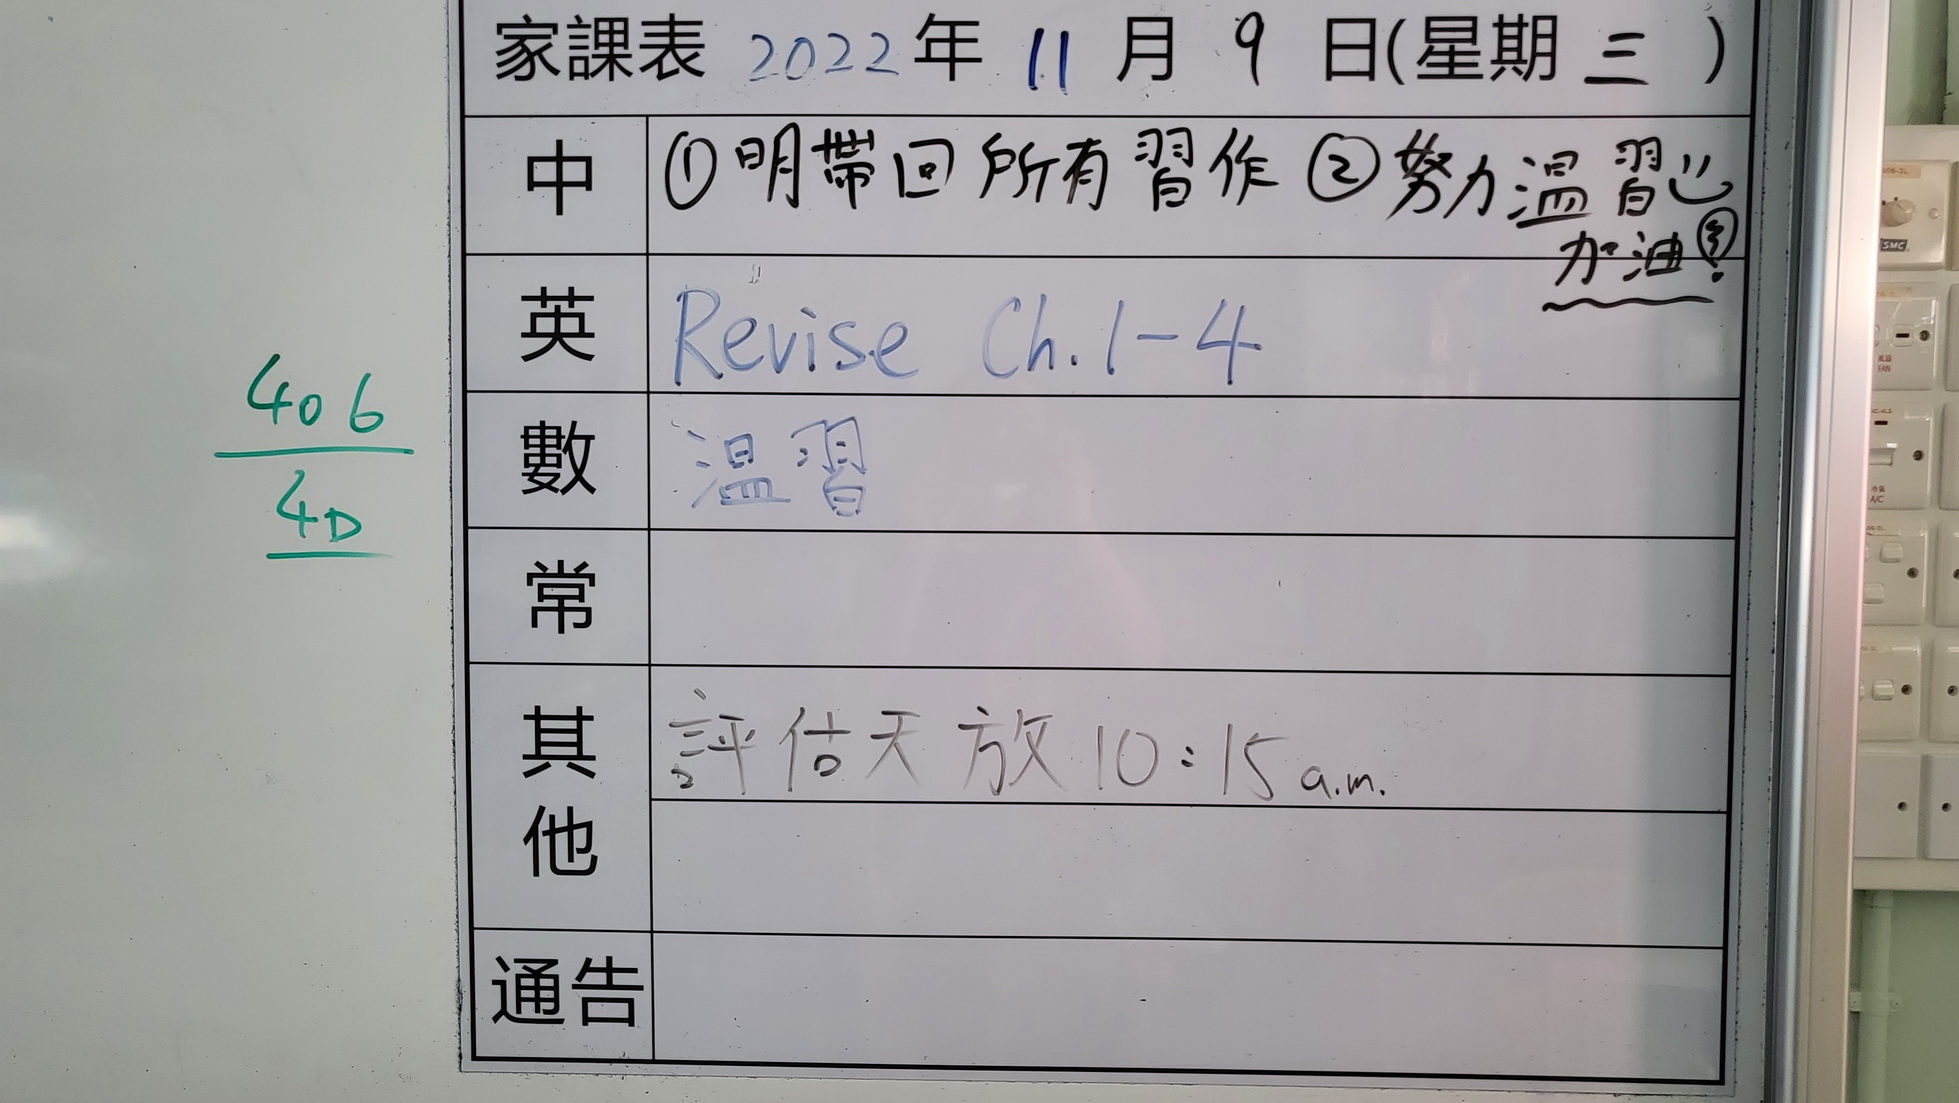 家課表 2022年 11 月 9 日(星期 三 )
中 ①明帶回所有習作 ②努力溫習
加油!
英 Revise Ch. 1-4
406
數 溫習
4D
常
其他 評估天放10:15 a.m.
通告
SMC
FAN
A/C